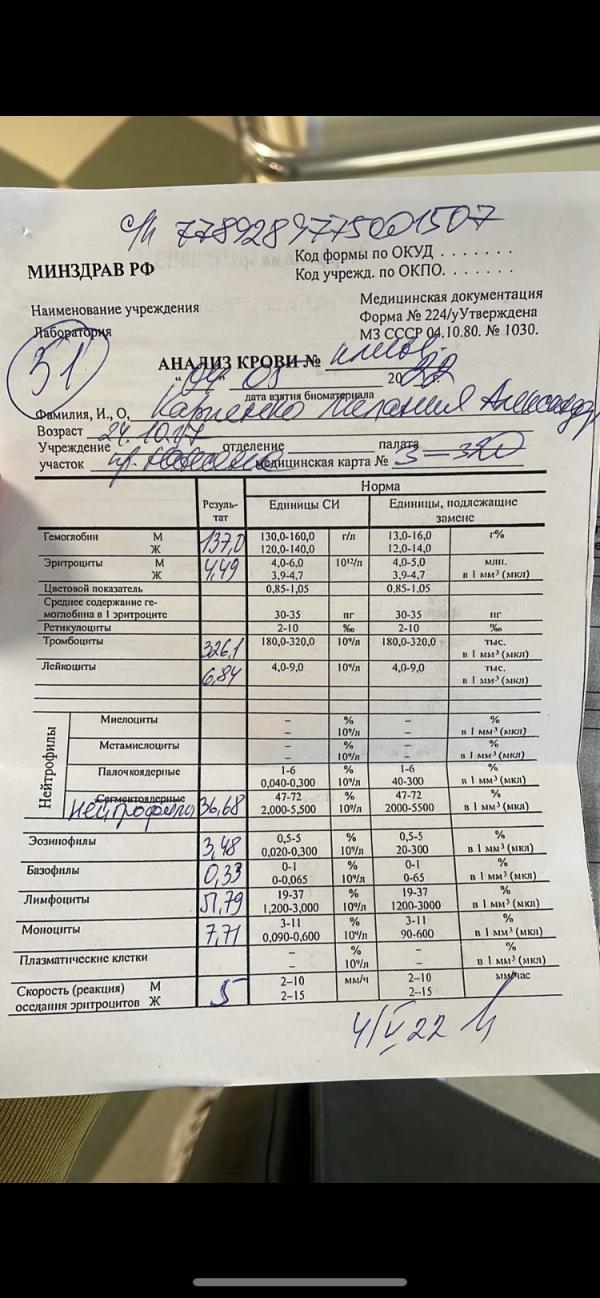 с/п 7789289775001507
Код формы по ОКУД . . . . . . .
МИНЗДРАВ РФ
Код учрежд. по ОКПО. . . . . . .
Наименование учреждения
Медицинская документация
Лаборатория
Форма № 224/уУтверждена
МЗ СССР 04.10.80. № 1030.
31
АНАЛИЗ КРОВИ №
"04" 05 20 г.
дата взятия биоматериала
Фамилия, И., О,
Возраст 24.10.17
Учреждение отделение палата
участок медицинская карта № 3-320
Резуль-тат Норма
Единицы СИ Единицы, подлежащие замене
Гемоглобин М 137,0 130,0-160,0 г/л 13,0-16,0 г%
Ж 120,0-140,0 12,0-14,0
Эритроциты М 4,49 4,0-6,0 10¹²/л 4,0-5,0 млн.
Ж 3,9-4,7 3,9-4,7 в 1 мм³ (мкл)
Цветовой показатель 0,85-1,05 0,85-1,05
Среднее содержание ге-
моглобина в 1 эритроците 30-35 пг 30-35 пг
Ретикулоциты 2-10 ‰ 2-10 ‰
Тромбоциты 326,1 180,0-320,0 10⁹/л 180,0-320,0 тыс.
в 1 мм³ (мкл)
Лейкоциты 6,84 4,0-9,0 10⁹/л 4,0-9,0 тыс.
в 1 мм³ (мкл)
Нейтрофилы
Миелоциты – % – %
– 10⁹/л – в 1 мм³ (мкл)
Метамислоциты – % – %
– 10⁹/л – в 1 мм³ (мкл)
Палочкоядерные 1-6 % 1-6 %
0,040-0,300 10⁹/л 40-300 в 1 мм³ (мкл)
Сегментоядерные 47-72 % 47-72 %
нейтрофилы 36,68 2,000-5,500 10⁹/л 2000-5500 в 1 мм³ (мкл)
Эозинофилы 3,48 0,5-5 % 0,5-5 %
0,020-0,300 10⁹/л 20-300 в 1 мм³ (мкл)
Базофилы 0,33 0-1 % 0-1 %
0-0,065 10⁹/л 0-65 в 1 мм³ (мкл)
Лимфоциты 51,79 19-37 % 19-37 %
1,200-3,000 10⁹/л 1200-3000 в 1 мм³ (мкл)
Моноциты 7,71 3-11 % 3-11 %
0,090-0,600 10⁹/л 90-600 в 1 мм³ (мкл)
Плазматические клетки – % – %
– 10⁹/л – в 1 мм³ (мкл)
Скорость (реакция) М 5 2–10 мм/ч 2–10 мм/час
оседания эритроцитов Ж 2–15 2–15
4/V 22